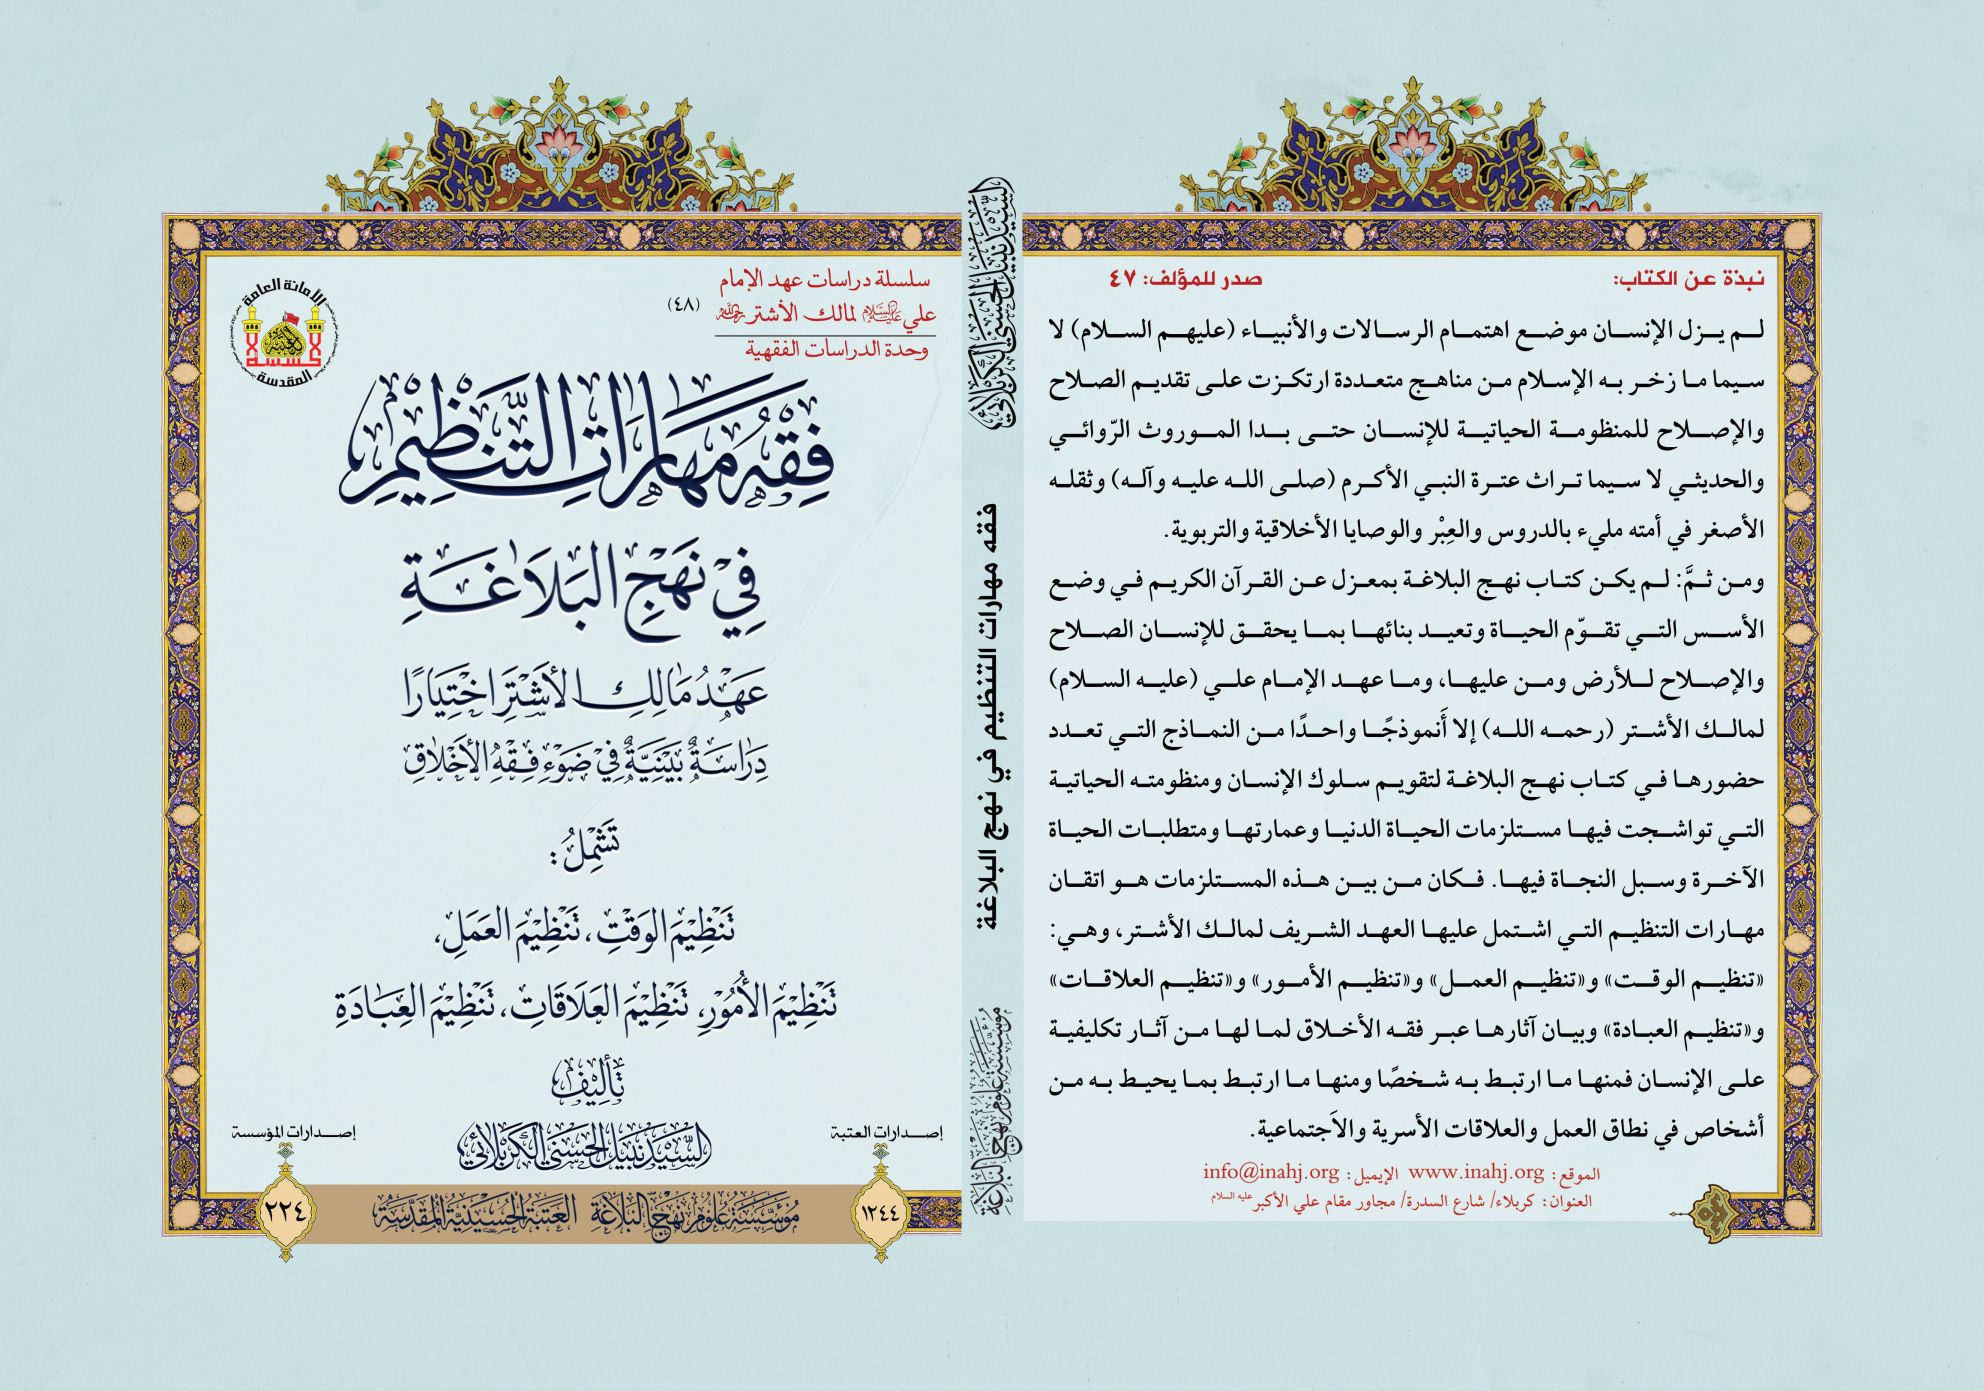 سلسلة دراسات عهد الإمام
علي عليه السلام لمالك الأشتر رحمه الله (٤٨)
وحدة الدراسات الفقهية
الأمانة العامة
للعتبة
الحسينية
المقدسة
فِقْهُ مَهَارَاتِ التَّنْظِيْمِ
فِيْ نَهْجِ البَلَاغَةِ
عَهْدُ مَالِكِ الأَشْتَرِ اخْتِيَارًا
دِرَاسَةٌ بَيْنِيَّةٌ فِيْ ضَوْءِ فِقْهِ الأَخْلَاقِ
تَشْمِلُ:
تَنْظِيْمَ الوَقْتِ، تَنْظِيْمَ العَمَلِ،
تَنْظِيْمَ الأُمُوْرِ، تَنْظِيْمَ العَلَاقَاتِ، تَنْظِيْمَ العِبَادَةِ
تَأْلِيْف
السَّيِّد نَبِيْل الحَسَنِي الكَرْبَلَائِي
إصـدارات العتبة
١٢٤٤
إصـدارات المؤسسة
٢٢٤
مُؤَسَّسَة عُلُوم نَهْج البَلَاغَة العَتَبَة الحُسَيْنِيَّة المُقَدَّسَة
السيد نبيل الحسني الكربلائي
فقه مهارات التنظيم في نهج البلاغة
مؤسسة علوم نهج البلاغة
نبذة عن الكتاب:
صدر للمؤلف: ٤٧
لـم يـزل الإنسـان موضـع اهتمـام الرسـالات والأنبيـاء (عليهـم السـلام) لا
سـيما مـا زخـر بـه الإسـلام مـن مناهـج متعـددة ارتكـزت علـى تقديـم الصـلاح
والإصـلاح للمنظومـة الحياتيـة للإنسـان حتـى بـدا المـوروث الرّوائـي
والحديثـي لا سـيما تـراث عتـرة النبـي الأكـرم (صلـى اللـه عليـه وآلـه) وثقلـه
الأصغر في أمته مليء بالدروس والعِبْر والوصايا الأخلاقية والتربوية.
ومـن ثـمَّ: لـم يكـن كتـاب نهـج البلاغـة بمعـزل عـن القـرآن الكريـم فـي وضـع
الأسـس التـي تقـوّم الحيـاة وتعيـد بنائهـا بمـا يحقـق للإنسـان الصـلاح
والإصـلاح لـلأرض ومـن عليهـا، ومـا عهـد الإمـام علـي (عليـه السـلام)
لمالـك الأشـتر (رحمـه اللـه) إلا أَنموذجًـا واحـدًا مـن النمـاذج التـي تعـدد
حضورهـا فـي كتـاب نهـج البلاغـة لتقويـم سـلوك الإنسـان ومنظومتـه الحياتيـة
التـي تواشـجت فيهـا مسـتلزمات الحيـاة الدنيـا وعمارتهـا ومتطلبـات الحيـاة
الآخـرة وسـبل النجـاة فيهـا. فـكان مـن بيـن هـذه المسـتلزمات هـو اتقـان
مهـارات التنظيـم التـي اشـتمل عليهـا العهـد الشـريف لمالـك الأشـتر، وهـي:
«تنظيـم الوقـت» و«تنظيـم العمـل» و«تنظيـم الأمـور» و«تنظيـم العلاقـات»
و«تنظيـم العبـادة» وبيـان آثارهـا عبـر فقـه الأخـلاق لمـا لهـا مـن آثـار تكليفيـة
علـى الإنسـان فمنهـا مـا ارتبـط بـه شـخصًا ومنهـا مـا ارتبـط بمـا يحيـط بـه مـن
أشخاص في نطاق العمل والعلاقات الأسرية والاَجتماعية.
الموقع: www.inahj.org الإيميل: info@inahj.org
العنوان: كربلاء/ شارع السدرة/ مجاور مقام علي الأكبر عليه السلام